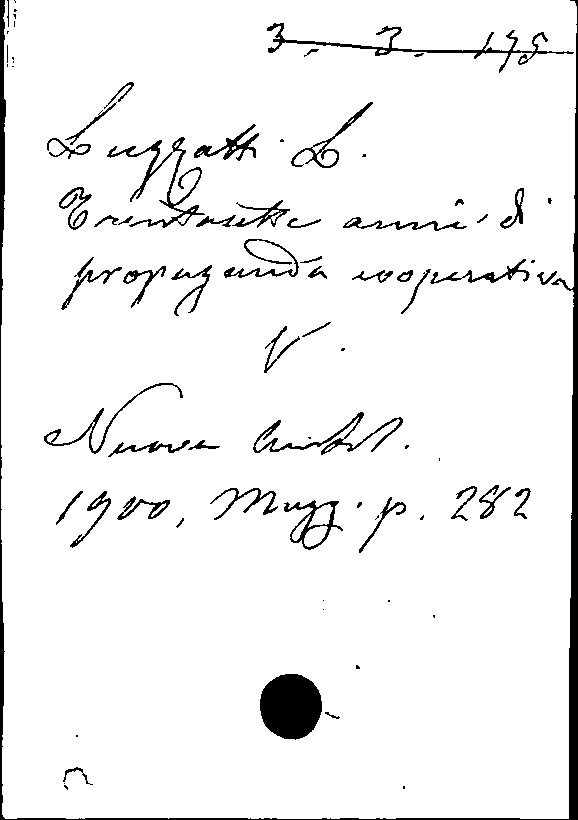 3. 3. 175
Luzzatti L.
Trentasette anni di
propaganda cooperativa
V.
Nuova Antol.
1900, Magg. p. 282